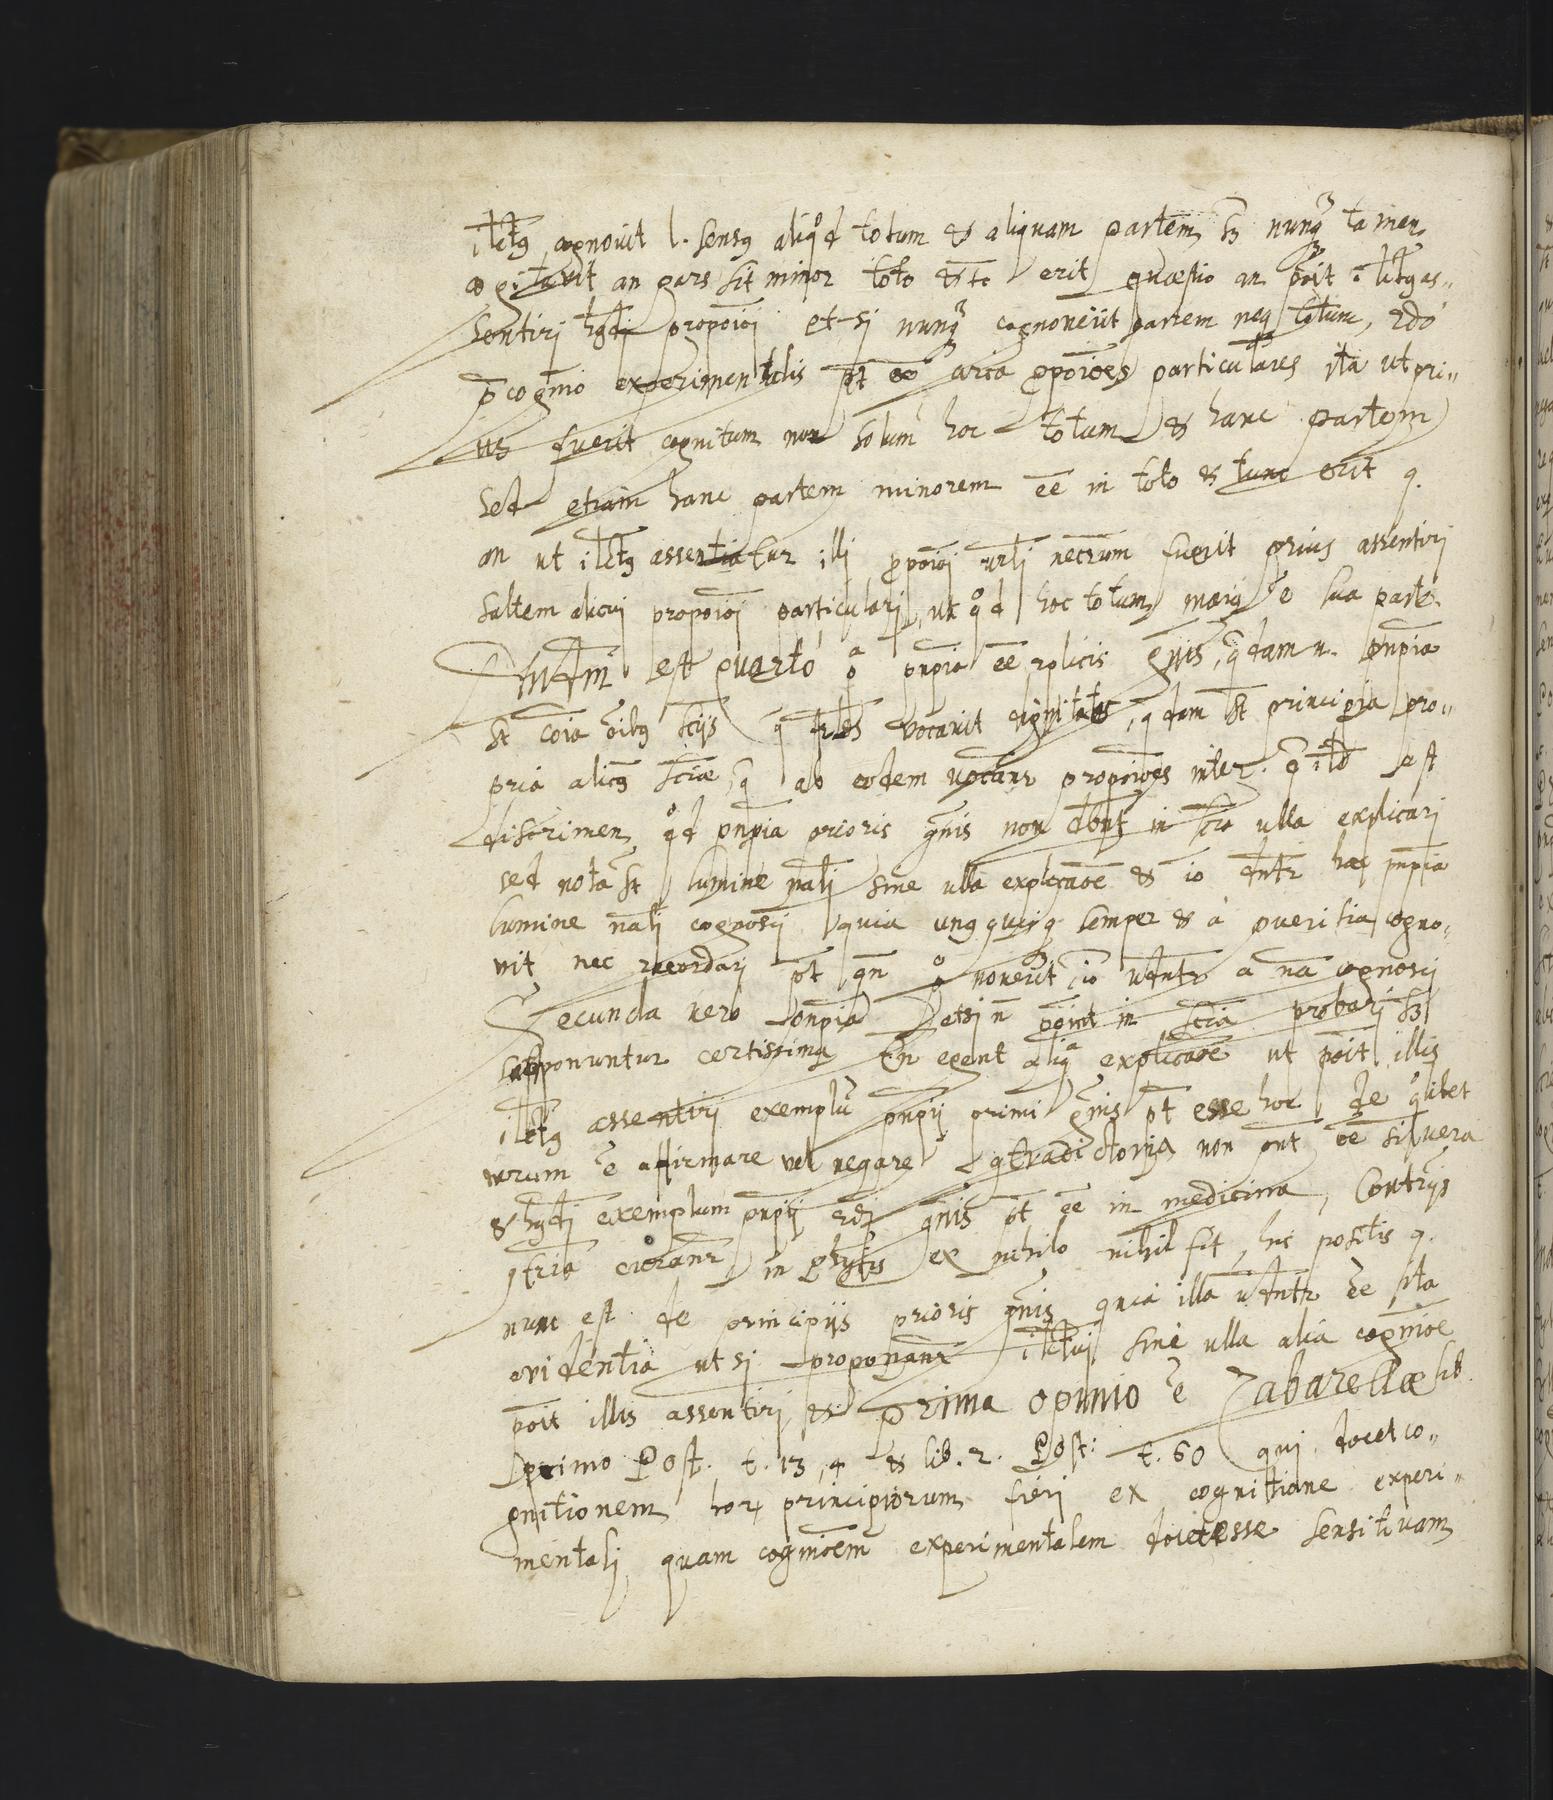 iłctꝯ cognovit l. sensꝯ aliqͦd totum & aliquam partem sꝫ nunqꝫ tamen
cogitavit an pars sit minor toto & tc̄ erit quæstio an p̄oit iłctꝯ as-
sentiri propōioi et si nunqꝫ cognoverit partem neq totum, 2dó
p̄cogn̄io experimentalis p̄t e͞e circa p̄pōioes particulares ita ut pri-
us fuerit cognitum non solum hoc totum & hanc partem
sed etiam hanc partem minorem e͞e in toto & tunc erit q.
an ut iłctꝯ assentiatur illi p̄pōioi nec̄rium fuerit prius assentiri
saltem alicui propōioi particulari, ut qͦd hoc totum maiꝯ ē sua parte.
est quartó pn̄pia e͞e 2plicis gn̄is, q̄dam n. pn̄pia
st̄ cōia oībꝯ sc̄ijs q̄ vocavit dignitates, q̄dam st̄ principia pro-
pria alicꝯ sc̄iæ, q̄ ab eodem vocānr propōioes inter. est
discrimen, qͦd pn̄pia prioris gn̄is non dn̄t in sc̄ia ulla explicari
sed nota st̄ lumine nāli sine ulla explicāoe & io dn̄tr hæc pn̄pia
lumine nāli cognosci quia unꝯquisq semper & à pueritia cogno-
vit nec recordari p̄t qn̄ noverit, io dn̄tr a nā cognosci
Secunda vero pn̄pia etsi n̄ in sc̄ia probari sꝫ
supponuntur certissima tn̄ egent aliqͣ explicāoe ut p̄oit illis
iłctꝯ assentiri exemplū pn̄pij primi gn̄is p̄t esse hoc de qͦlibet
verum ē affirmare vel negare, 9tradictoria non pn̄t e͞e sil vera
& exemplum pn̄pij 2di gn̄is p̄t e͞e in medicina, Contrijs
9tria curānr in Phycis ex nihilo nihil fit, his positis q.
nunc est de principijs prioris gn̄is quia illa e͞e ita
evidentia ut si proponānr iłctui sine ulla alia cogn̄ioe
p̄oit illis assentiri & prima opinio ē Zabarellæ lib.
primo Post. t. 13, 4 & lib. 2. Post: t. 60 qui docet co-
gnitionem hoꝝ principiorum fieri ex cognitione experi-
mentali, quam cogn̄ioem experimentalem docet esse sensitivam